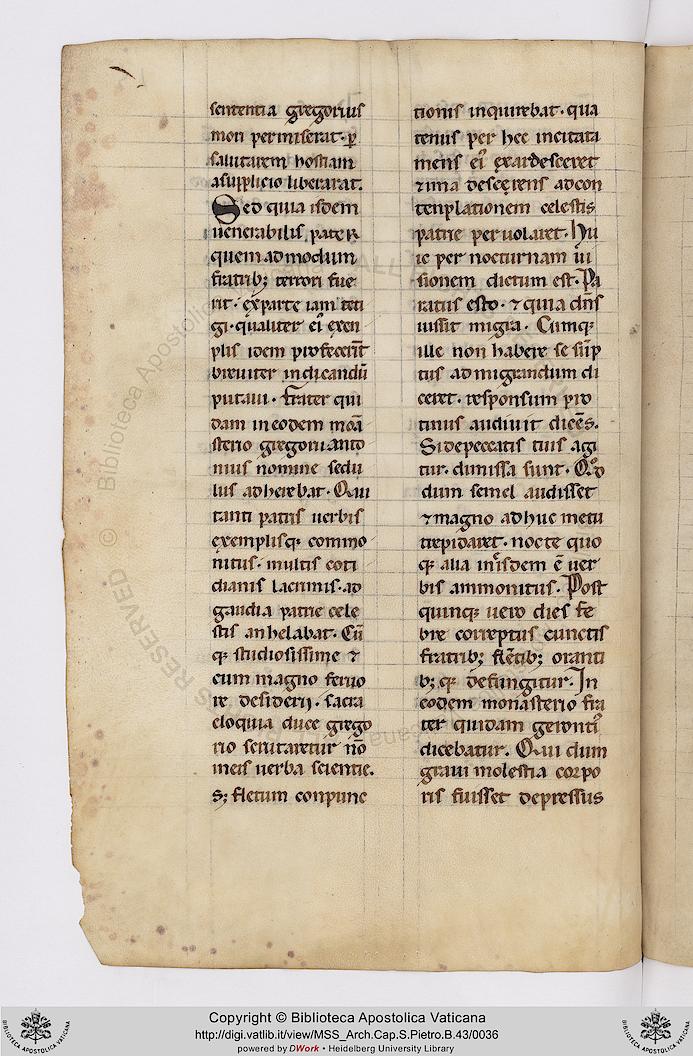 sententia gregorius
mori permiserat · p̲
salutarem hostiam
a supplicio liberarat.
Sed quia isdem
uenerabilis pater
quem ad modum
fratrib; terrori fue
rit · ex parte iam teti
gi · qualiter eiꝰ exen
plis idem profecerīt
breuiter indicandū
putaui · Frater qui
dam in eodem moñ
sterio gregorii anto
nius nomine sedu
lus adherebat · Qui
tanti patris uerbis
exemplisqꝫ commo
nitus · multis coti
dianis lacrimis · ad
gaudia patrie cele
stis anhelabat · Cū
qꝫ studiosissime ⁊
cum magno feruo
re desiderij · sacra
eloquia duce grego
rio scrutaretur nō
in eis uerba scientie.
s; fletum conpunc
tionis inquirebat · qua
tenus per hec incitata
mens eiꝰ exardesceret
⁊ ima deserens ad con
templationem celestis
patrie peruolaret · Hu
ic per nocturnam ui
sionem dictum est · Pa
ratus esto · ⁊ quia dñs
iussit migra · Cumqꝫ
ille non habere se sūp
tus ad migrandum di
ceret · responsum pro
tinus audiuit dicēs.
Si de peccatis tuis agi
tur · dimissa sunt · Qd̓
dum semel audisset
⁊ magno adhuc metu
trepidaret · nocte quo
qꝫ alia in isdem ē uer
bis ammonitus · Post
quinqꝫ uero dies fe
bre correptus cunctis
fratrib; flētib; oranti
b; qꝫ defungitur · In
eodem monasterio fra
ter quidam gerontiꝰ
dicebatur. Qui dum
graui molestia corpo
ris fuisset depressus
© Biblioteca Apostolica Vaticana
Copyright © Biblioteca Apostolica Vaticana
http://digi.vatlib.it/view/MSS_Arch.Cap.S.Pietro.B.43/0036
powered by DWork • Heidelberg University Library